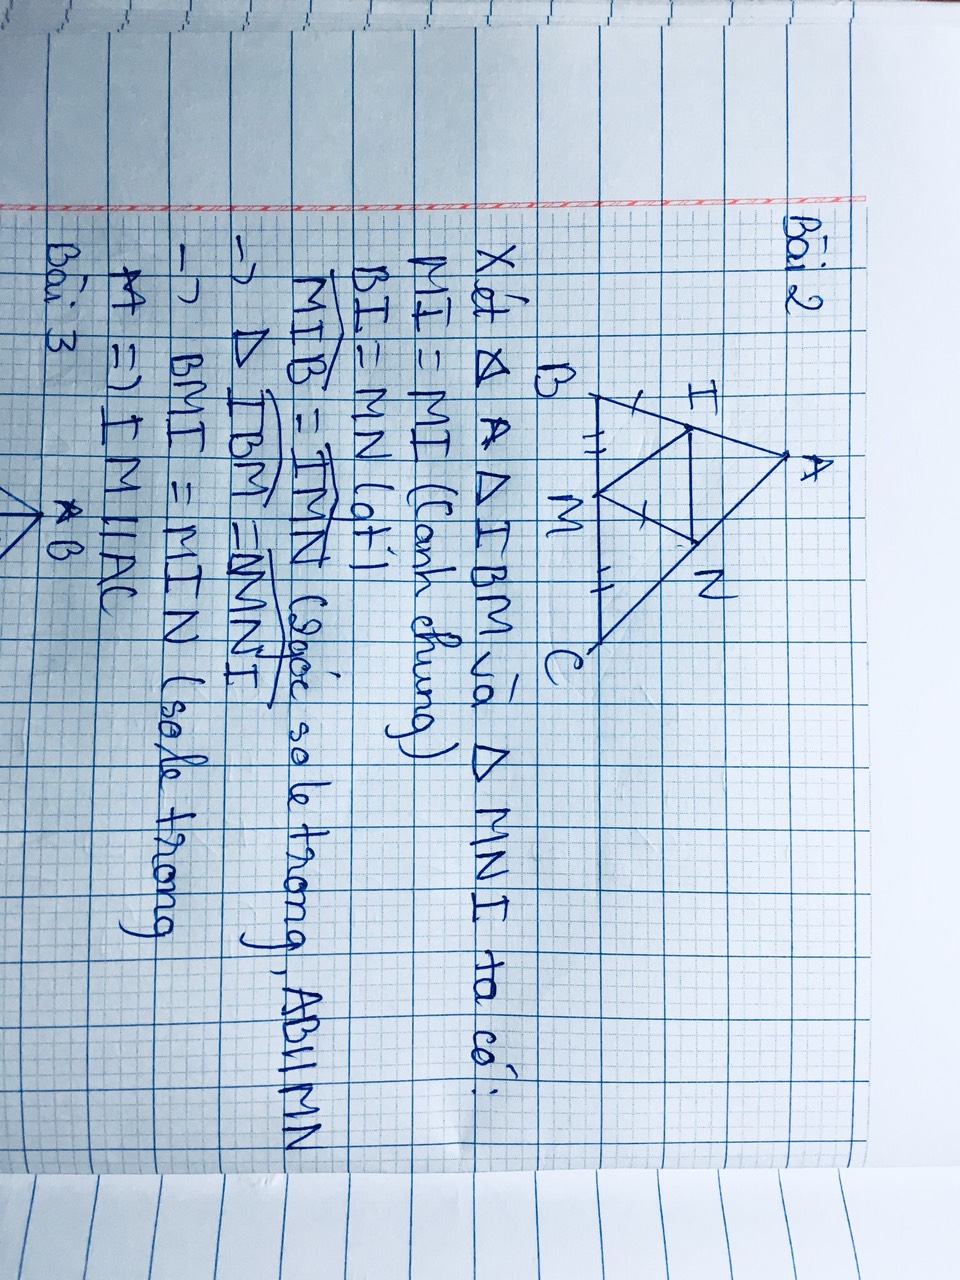 Bài 2
A
I
N
B
M
C
Xét A Δ IBM và Δ MNI ta có:
MI = MI (Canh chung)
BI = MN (gt)
MIB = IMN (góc so le trong, AB//MN
-> Δ IBM = NMNI
-> BMI = MIN (sole trong
=) IM//AC
Bài 3
B